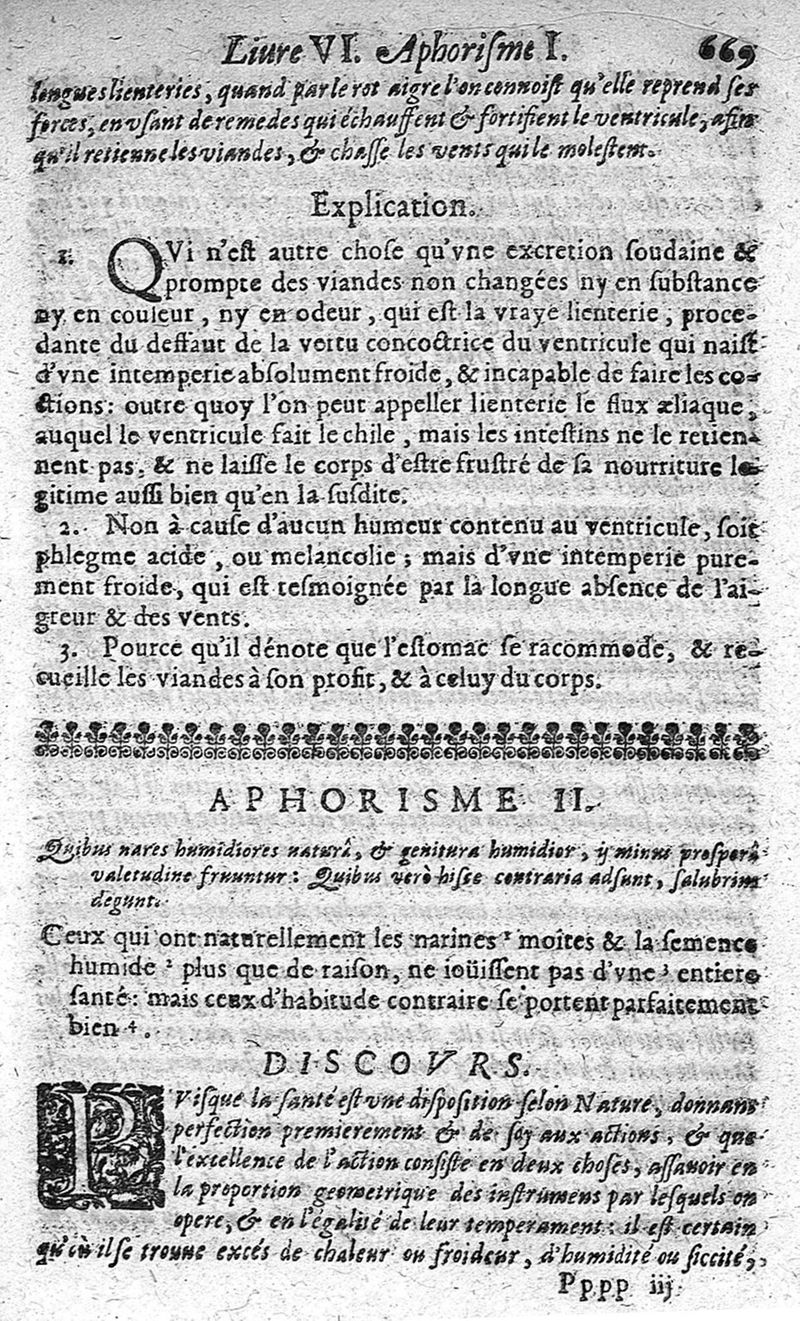 Liure VI. Aphoriſme I. 669
longues lienteries, quand par le rot aigre l'on connoiſt qu'elle reprend ſes
forces, en vſant de remedes qui échauffent & fortifient le ventricule, afin
qu'il retienne les viandes, & chaſſe les vents qui le moleſtent.
Explication.
1. QVi n'eſt autre choſe qu'vne excretion ſoudaine &
prompte des viandes non changées ny en ſubſtance
ny en couleur, ny en odeur, qui eſt la vraye lienterie, proce-
dante du deffaut de la vertu concoctrice du ventricule qui naiſt
d'vne intemperie abſolument froide, & incapable de faire les co-
ctions: outre quoy l'on peut appeller lienterie le flux æliaque,
auquel le ventricule fait le chile, mais les inteſtins ne le retien-
nent pas, & ne laiſſe le corps d'eſtre fruſtré de ſa nourriture le-
gitime auſſi bien qu'en la ſuſdite.
2. Non à cauſe d'aucun humeur contenu au ventricule, ſoit
phlegme acide, ou melancolie; mais d'vne intemperie pure-
ment froide, qui eſt teſmoignée par la longue abſence de l'ai-
greur & des vents.
3. Pource qu'il dénote que l'eſtomac ſe racommode, & re-
cueille les viandes à ſon profit, & à celuy du corps.
APHORISME II.
Quibus nares humidiores naturâ, & genitura humidior, ij minus proſperâ
valetudine fruuntur: Quibus verò hiſce contraria adſunt, ſalubrius
degunt.
Ceux qui ont naturellement les narines ¹ moites & la ſemence
humide ² plus que de raiſon, ne ioüiſſent pas d'vne ³ entiere
ſanté: mais ceux d'habitude contraire ſe portent parfaitement
bien ⁴.
DISCOVRS.
PViſque la ſanté eſt vne diſpoſition ſelon Nature, donnant
perfection premierement & de ſoy aux actions, & que
l'excellence de l'action conſiſte en deux choſes, aſſauoir en
la proportion geometrique des inſtrumens par leſquels on
opere, & en l'égalité de leur temperament: il eſt certain
qu'où il ſe trouue excés de chaleur ou froideur, d'humidité ou ſiccité,
Pppp iij